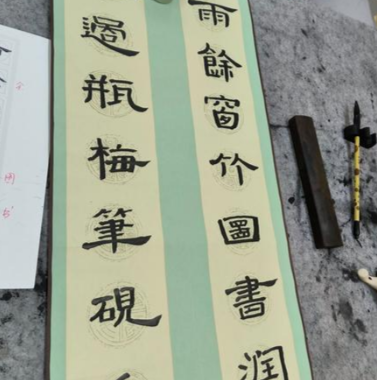 雨餘窗竹圖書润
過瓶梅筆硯